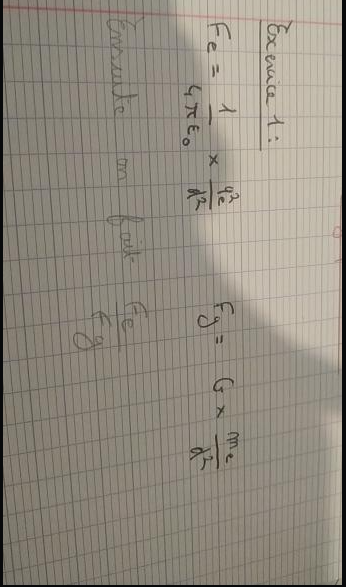 Exercice 1 :
Fe = 1/4πε₀ × qe²/d² Fg = G × me/d²
Ensuite on fait Fe/Fg